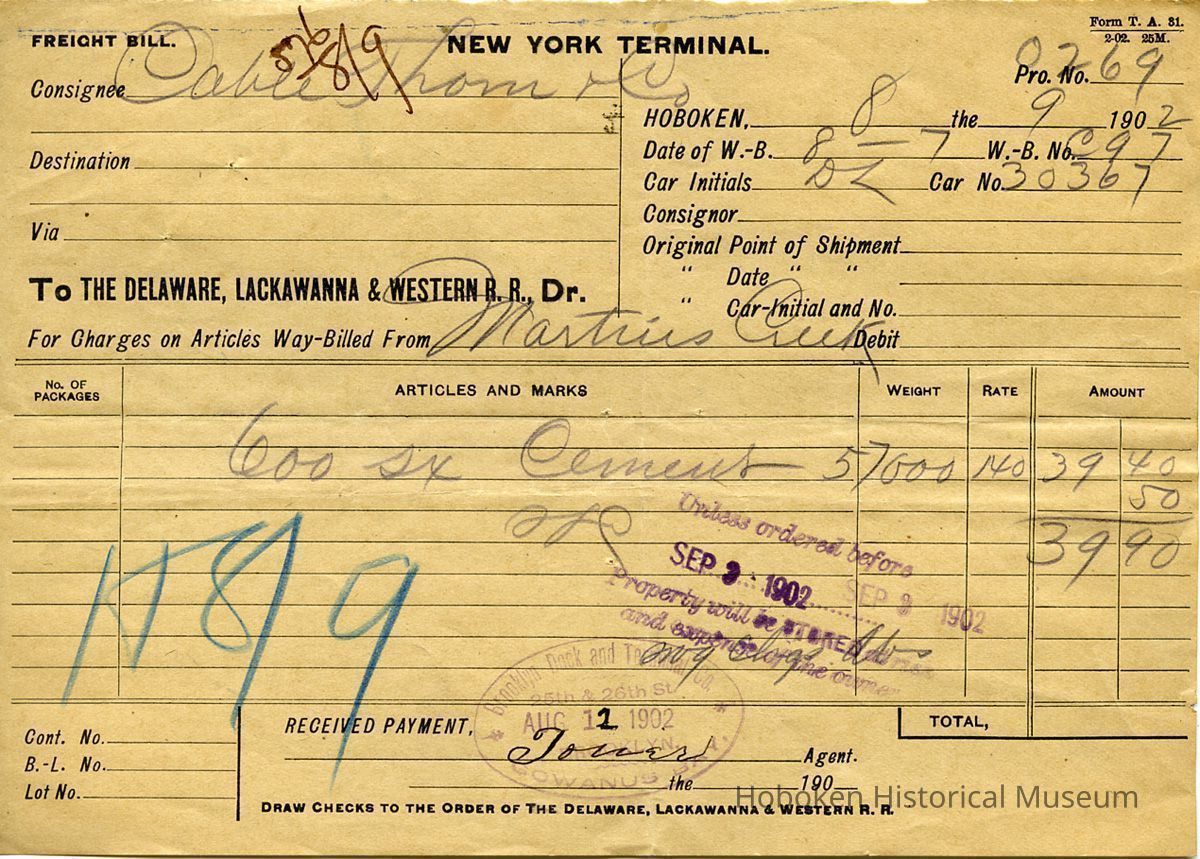 Form T. A. 31.
2-02. 25M.
FREIGHT BILL. 8/9 NEW YORK TERMINAL.
Pro. No. 0269
Consignee Cable Thom & Co
HOBOKEN, 8 the 9 1902
Destination
Date of W.-B. 8-7 W.-B. No. C97
Car Initials DL Car No. 30367
Consignor
Via
Original Point of Shipment
" Date " "
To THE DELAWARE, LACKAWANNA & WESTERN R. R., Dr.
" Car-Initial and No.
For Charges on Articles Way-Billed From Martins Creek Debit
No. OF PACKAGES ARTICLES AND MARKS WEIGHT RATE AMOUNT
600 sx Cement 57000 140 39 40
50
39 90
Unless ordered before
SEP 3 1902 SEP 3 1902
Property will be STORED
and expense of the owner
8/9
Brooklyn Dock and Terminal Co.
25th & 26th St
AUG 12 1902
GOWANUS BAY
RECEIVED PAYMENT, TOTAL,
Cont. No.
B.-L. No. Agent.
Lot No. the 190
DRAW CHECKS TO THE ORDER OF THE DELAWARE, LACKAWANNA & WESTERN R. R.
Hoboken Historical Museum